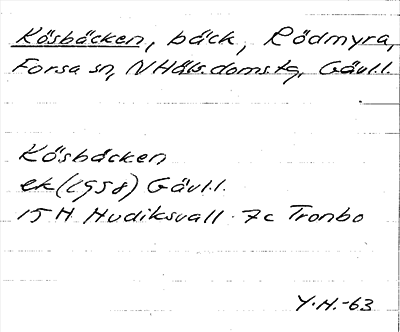 Kösbäcken, bäck, Rödmyra,
Forsa sn, N Häls. domstg, Gävl.l.
Kösbäcken
ek (1958) Gävl.l.
15 H Hudiksvall 7c Tronbo
Y.H.-63